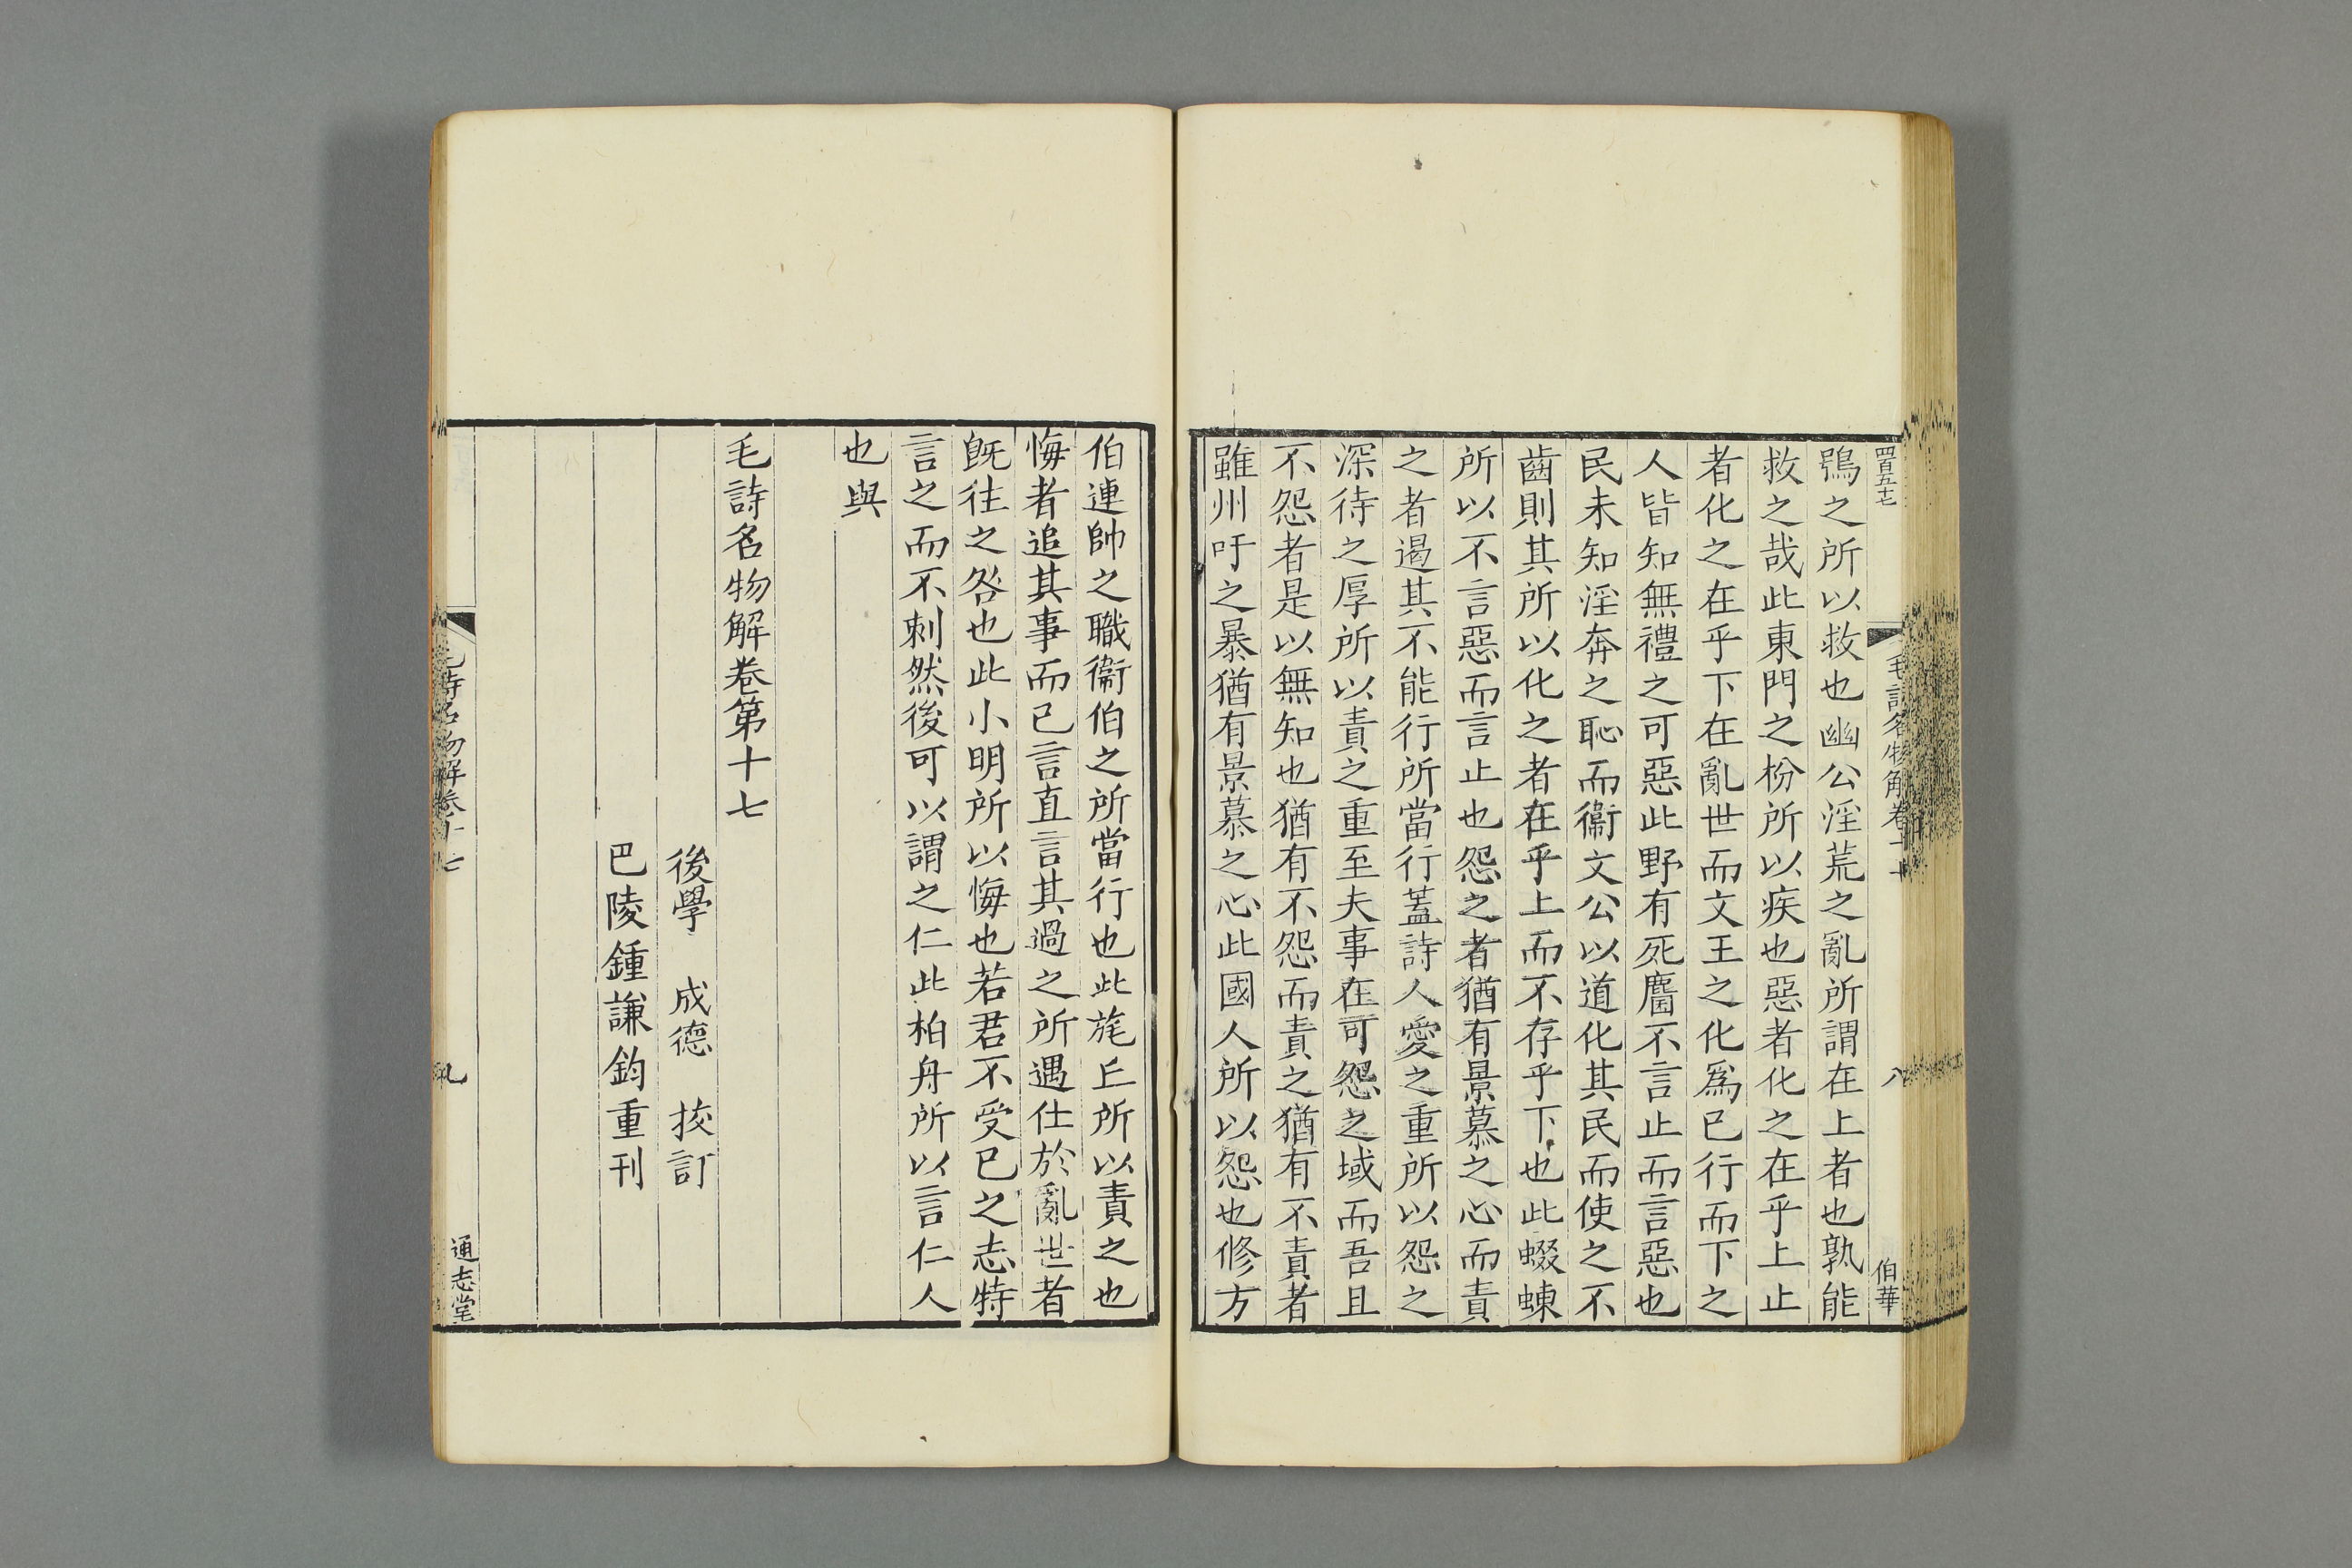 四百五十七
毛詩名物解卷十
八
伯華
鴞之所以救也幽公淫荒之亂所謂在上者也孰能
救之哉此東門之枌所以疾也惡者化之在乎上止
者化之在乎下在亂世而文王之化爲已行而下之
人皆知無禮之可惡此野有死麕不言止而言惡也
民未知淫奔之恥而衞文公以道化其民而使之不
齒則其所以化之者在乎上而不存乎下也此蝃蝀
所以不言惡而言止也怨之者猶有景慕之心而責
之者遏其不能行所當行蓋詩人愛之重所以怨之
深待之厚所以責之重至夫事在可怨之域而吾且
不怨者是以無知也猶有不怨而責之猶有不責者
雖州吁之暴猶有景慕之心此國人所以怨也修方
伯連帥之職衞伯之所當行也此旄丘所以責之也
悔者追其事而已言直言其過之所遇仕於亂世者
旣往之咎也此小明所以悔也若君不受已之志特
言之而不刺然後可以謂之仁此柏舟所以言仁人
也與
毛詩名物解卷第十七
後學 成德 挍訂
巴陵鍾謙鈞重刊
毛詩名物解卷十七
九
通志堂